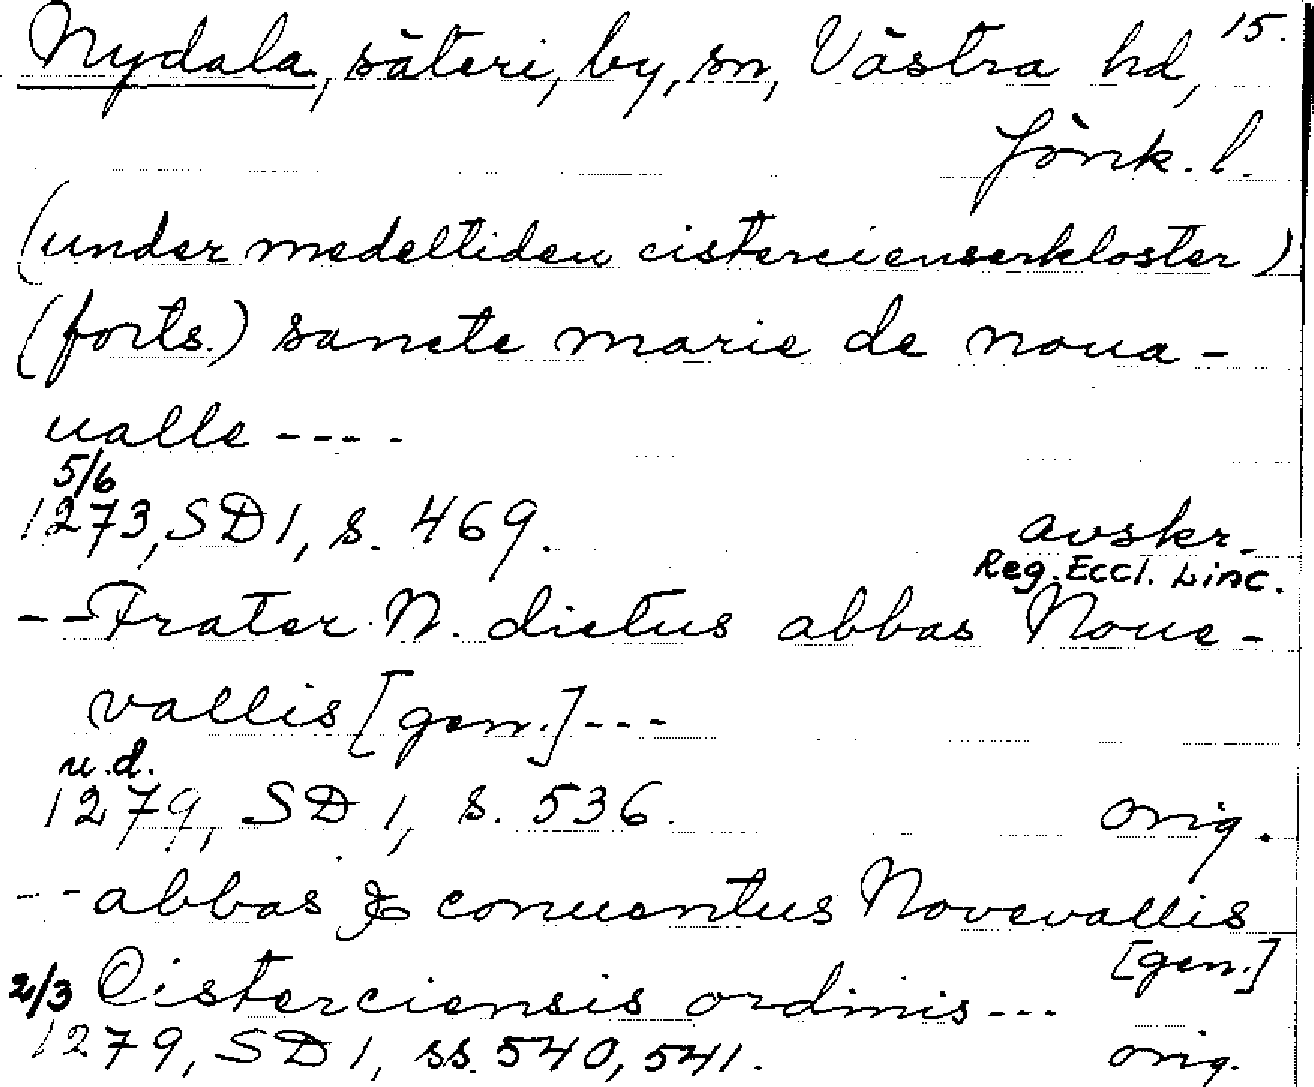 15.
Nydala, säteri, by, sn, Västra hd,
Jönk. l.
(under medeltiden cistercienserkloster)
(forts.) sancte marie de noua-
ualle ----
5/6
1273, SD 1, s. 469. avskr.
Reg. Eccl. Linc.
-- Frater N. dictus abbas Noue-
vallis [gen.] ---
u.d.
1279, SD 1, s. 536. orig.
-- abbas & conuentus Novevallis
[gen.]
2/3 Cisterciensis ordinis ---
1279, SD 1, ss. 540, 541. orig.